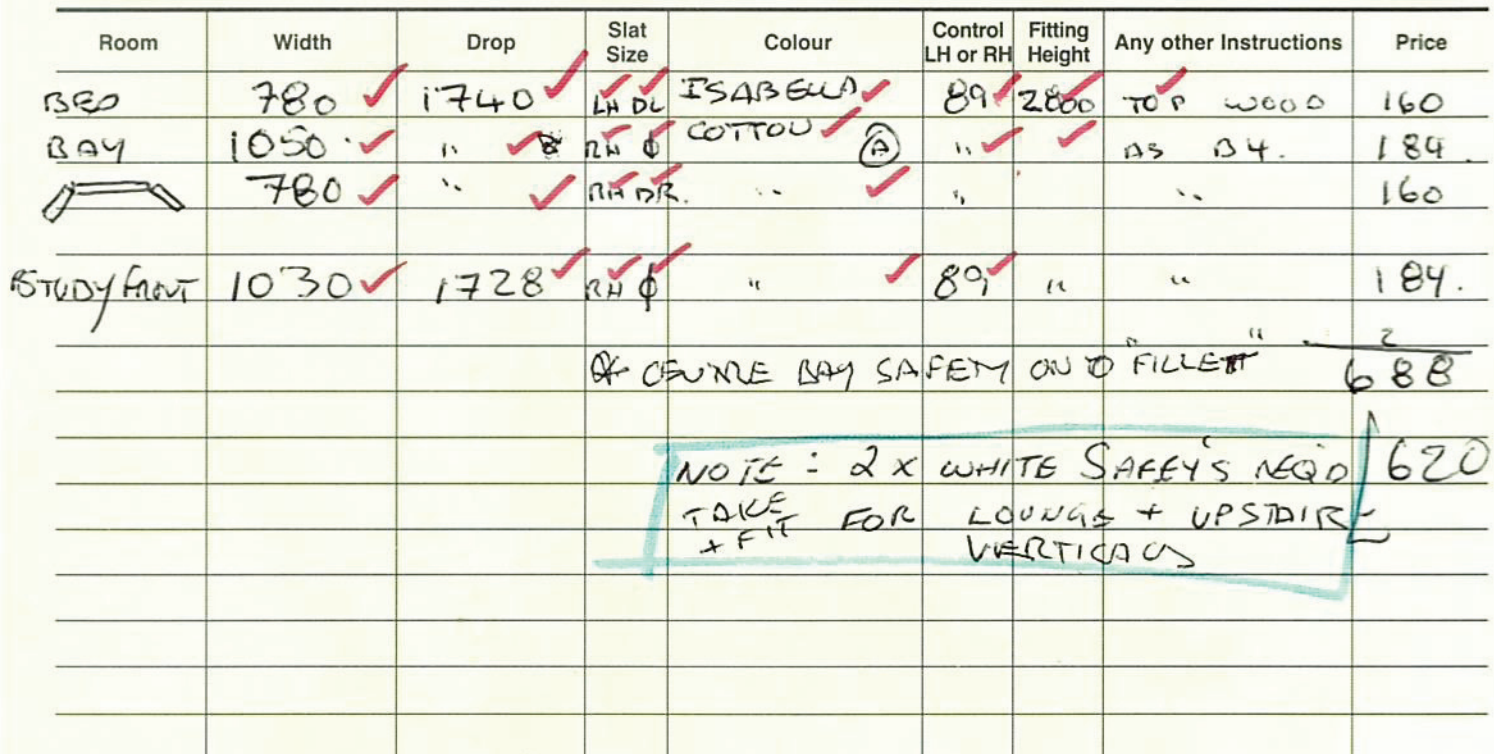 Room Width Drop Slat Size Colour Control LH or RH Fitting Height Any other Instructions Price
BED 780 1740 LH DL ISABELLA 89 2800 TOP WOOD 160
BAY 1050 " RH COTTON A " AS B4. 184.
780 " RH DR. " " " 160
STUDY FRONT 1030 1728 RH " 89 " " 184.
2
* CENTRE BAY SAFETY ONTO "FILLET" 688
NOTE : 2 X WHITE SAFEY'S REQD 620
TAKE + FIT FOR LOUNGE + UPSTAIR
VERTICALS